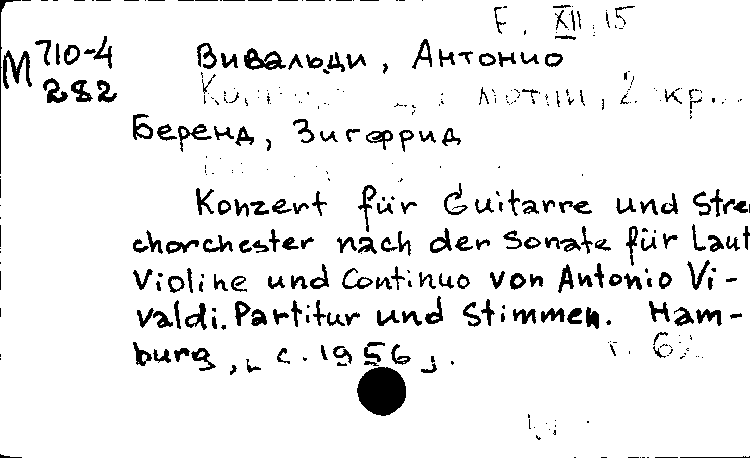 F. XII, 15
M 710-4 Вивальди, Антонио
282 2 кр...
Беренд, Зигфрид
Konzert für Guitarre und Strei
chorchester nach der Sonate für Laut
Violine und Continuo von Antonio Vi-
valdi. Partitur und Stimmen. Ham-
burg, [c. 1956].